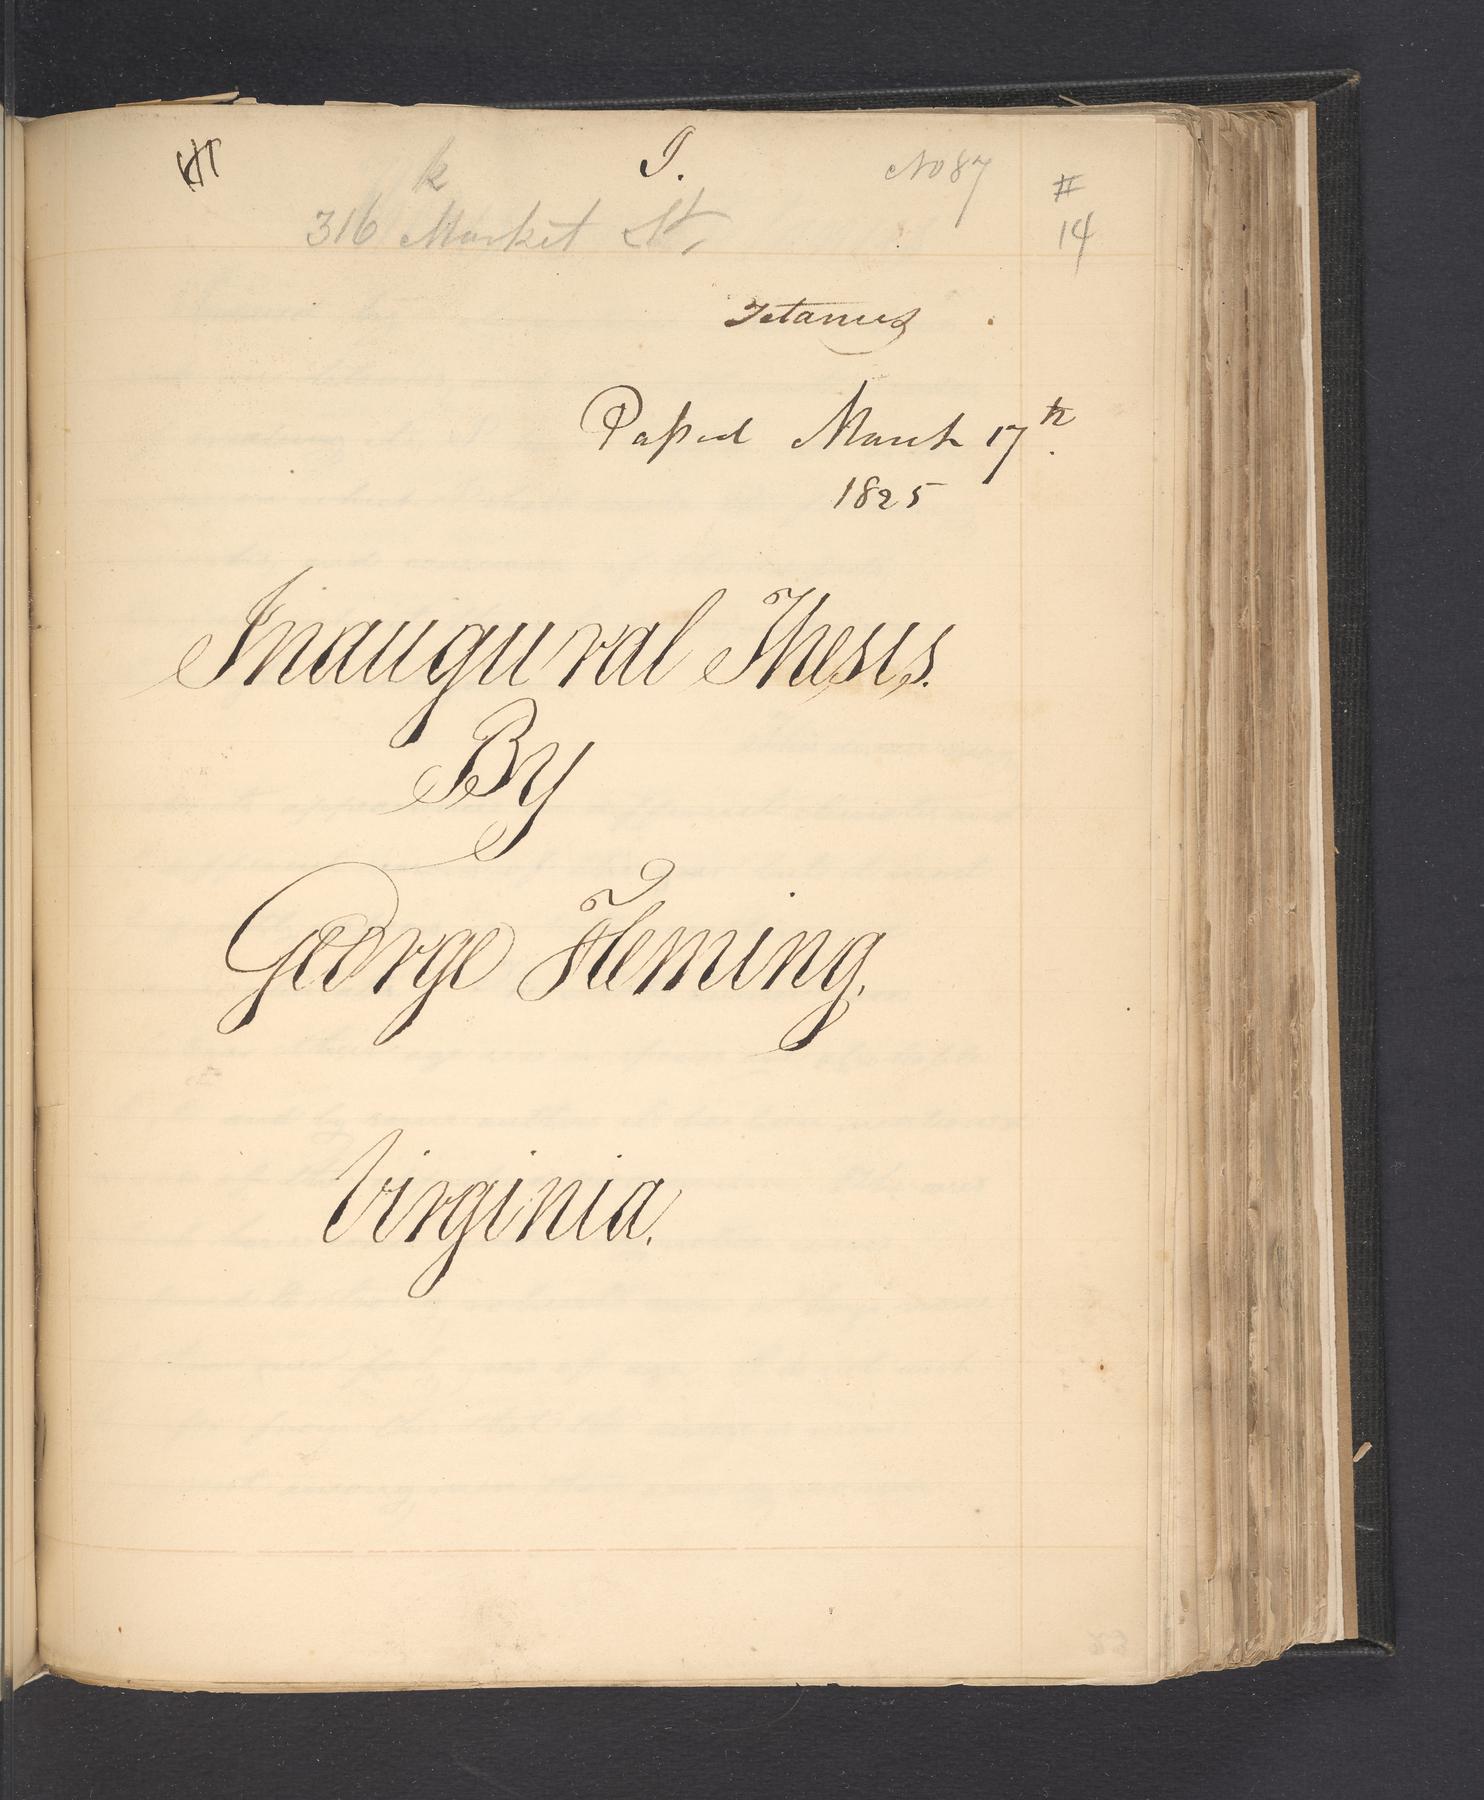 k
I.
No 87
#
14
316 Market St,
Tetanus
Passed March 17th.
1825
Inaugural Thesis.
By
George Fleming,
Virginia.